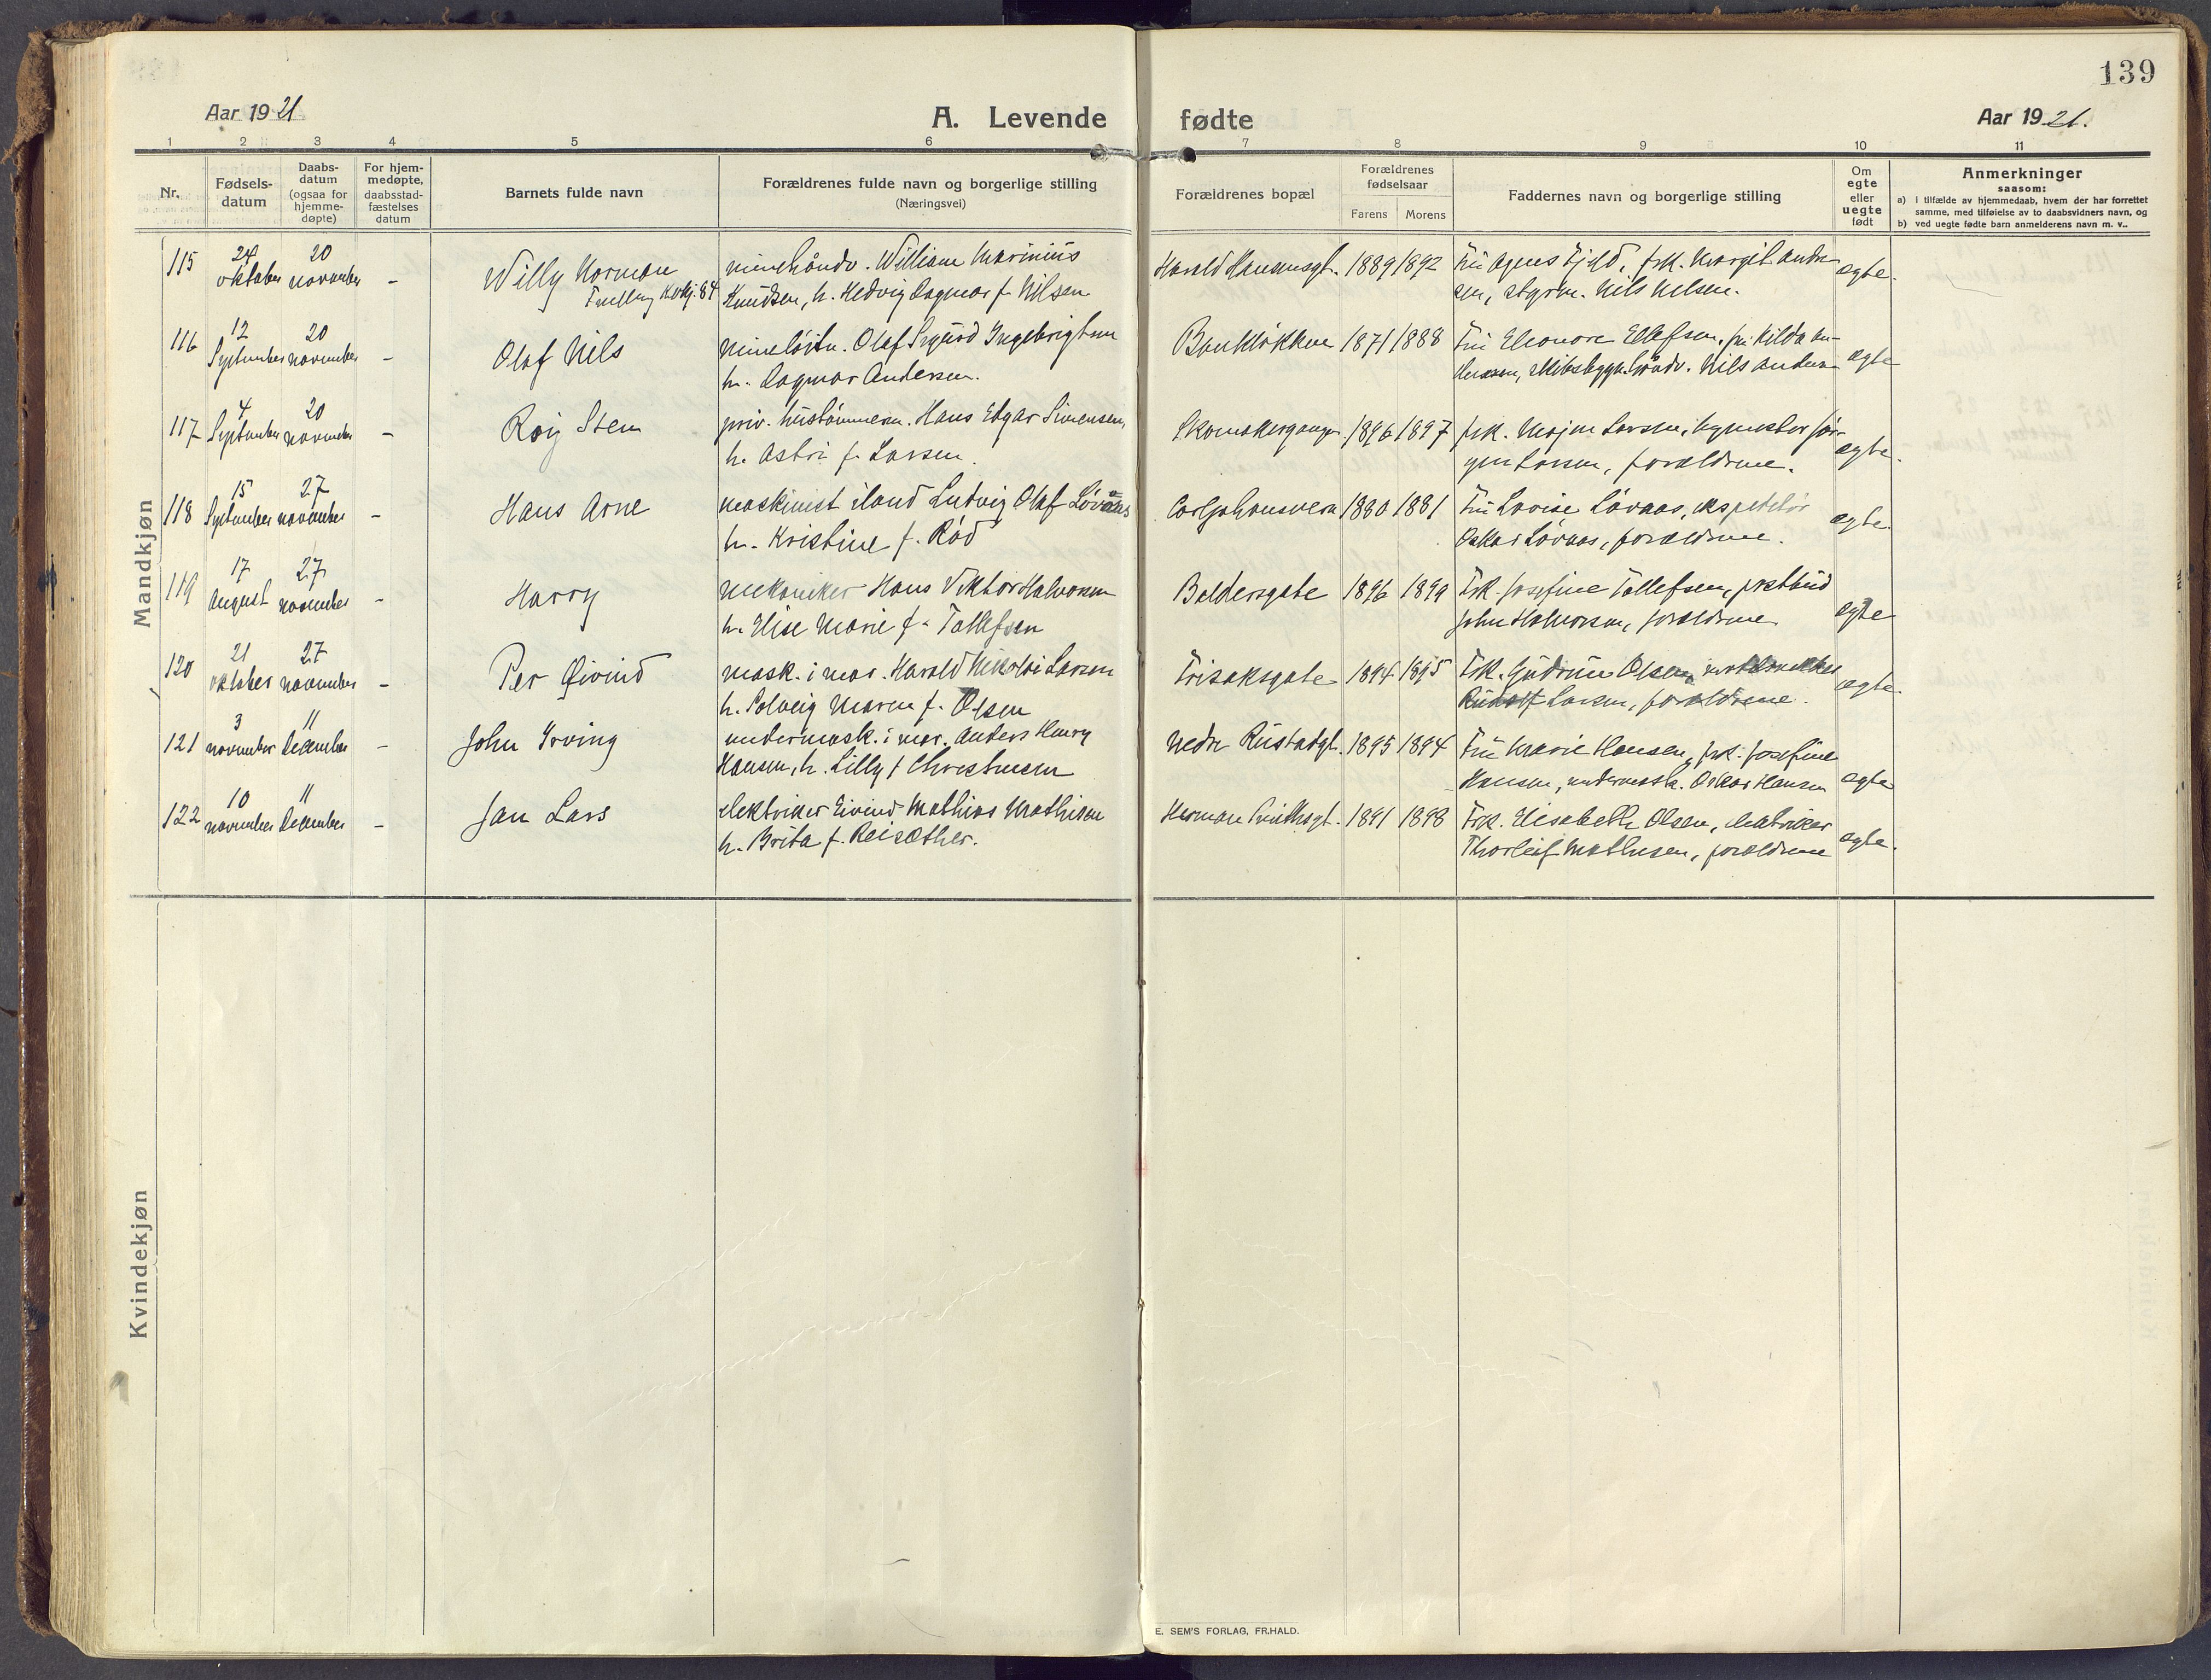 139
Aar 1921
A. Levende fødte
Aar 1921.
1 2 3 4 5 6 7 8 9 10 11
Nr.
Fødsels-
datum
Daabs-
datum
(ogsaa for
hjemme-
døpte)
For hjem-
medøpte,
daabsstad-
fæstelses
datum
Barnets fulde navn
Forældrenes fulde navn og borgerlige stilling
(Næringsvei)
Forældrenes bopæl
Forældrenes
fødselsaar
Farens Morens
Faddernes navn og borgerlige stilling
Om
egte
eller
uegte
født
Anmerkninger
saasom:
a) i tilfælde av hjemmedaab, hvem der har forrettet
samme, med tilføielse av to daabsvidners navn, og
b) ved uegte fødte barn anmelderens navn m. v..
Mandkjøn
115 24 oktober 20 november - Willy Norman
minehåndv. William Marinius
Knudsen, h. Hedvig Dagmar f. Nilsen
Harald Hansensgt. 1889 1892
Fru Agnes Fjeld, frk. Margit Andre-
sen, styrm. Nils Nilsen.
egte.
116 12 September 20 november - Olaf Nils
mineløitn. Olaf Sigurd Ingebrigtsen
h. Dagmar Andersen.
Bankløkken 1871 1888
Fru Eleonore Ellefsen, fru Hilda An-
dersen, skibsbygn. håndv. Nils Andersen
egte
117 4 September 20 november - Roy Sten
priv. hustømmerm. Hans Edgar Simensen,
h. Astri f. Larsen.
Skomakergangen 1896 1897
frk. Larsen, Jør-
gen Larsen, forældrene.
egte.
118 15 September 27 november - Hans Arne
maskinist iland Ludvig Olaf Løvaas
h. Kristine f. Rød
Carljohansvern 1880 1881
Fru Lovise Løvaas, ekspeditør
Oskar Løvaas, forældrene.
egte.
119 17 August 27 november - Harry
mekaniker Hans Viktor Halvorsen
h. Elise Marie f. Tollefsen
Baldersgate 1896 1899
Frk. Josefine Tollefsen, postbud
John Halvorsen, forældrene
egte
120 21 oktober 27 november - Per Øivind
mask. i mar. Harald Nikolai Larsen
h. Solveig Maren f. Olsen
Frisaksgate 1894 1895
Frk. Gudrun Olsen,
Rudolf Larsen, forældrene.
egte.
121 3 november 11 December - John Irving
undermask. i mar. Anders Henry
Hansen, h. Lilly f Christensen
Nedre Rustadgt. 1895 1894
Fru Marie Hansen, frk. Josefine
Hansen, undermask. Oskar Hansen
egte
122 10 november 11 December - Jan Lars
elektriker Eivind Mathias Mathisen
h. Brita f. Reisæther.
Herman 1891 1898
Frk. Elisabeth Olsen, elektriker
Thorleif Mathisen, forældrene
egte.
Kvindekjøn
E. SEM'S FORLAG, FR.HALD.